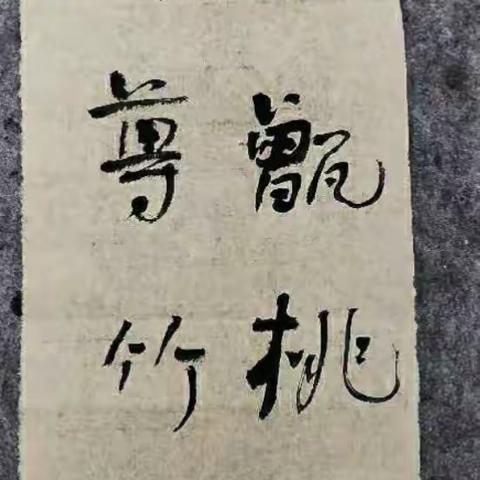 甑桃
尊竹